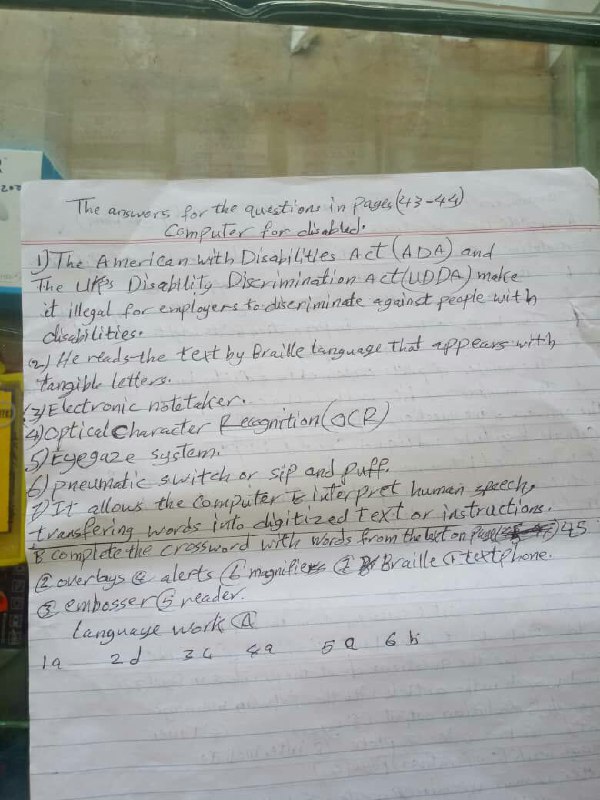 The answers for the questions in pages (43-44)
Computer for disabled.
1) The American with Disabilities Act (ADA) and
The UK's Disability Discrimination Act (UDDA) make
it illegal for employers to discriminate against people with
disabilities.
(2) He reads the text by Braille language that appears with
tangible letters.
(3) Electronic notetaker.
4) Optical Character Recognition (OCR)
5) Eyegaze system.
6) pneumatic switch or sip and puff.
7) It allows the computer to interpret human speech,
transfering words into digitized text or instructions.
B complete the crossword with words from the text on page 45
② overlays ④ alerts ⑥ magnifiers Braille ① textphone.
③ embosser ⑤ reader.
Language work Ⓐ
1a 2d 3c 4a 5a 6b